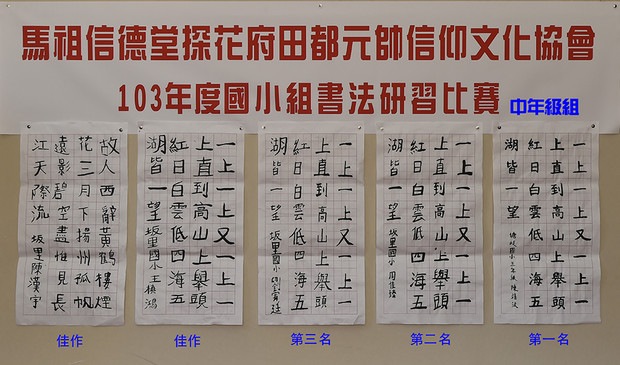 馬祖信德堂探花府田都元帥信仰文化協會
103年度國小組書法研習比賽 中年級組
一上一上又一上一
上直到高山上舉頭
紅日白雲低四海五
湖皆一望
第一名
一上一上又一上一
上直到高山上舉頭
紅日白雲低四海五
湖皆一望 坂里國小
第二名
一上一上又一上一
上直到高山上舉頭
紅日白雲低四海五
湖皆一望 坂里國小
第三名
一上一上又一上一
上直到高山上舉頭
紅日白雲低四海五
湖皆一望 坂里國小王
佳作
故人西辭黃鶴樓煙
花三月下揚州孤帆
遠影碧空盡惟見長
江天際流 坂里陳漢宇
佳作